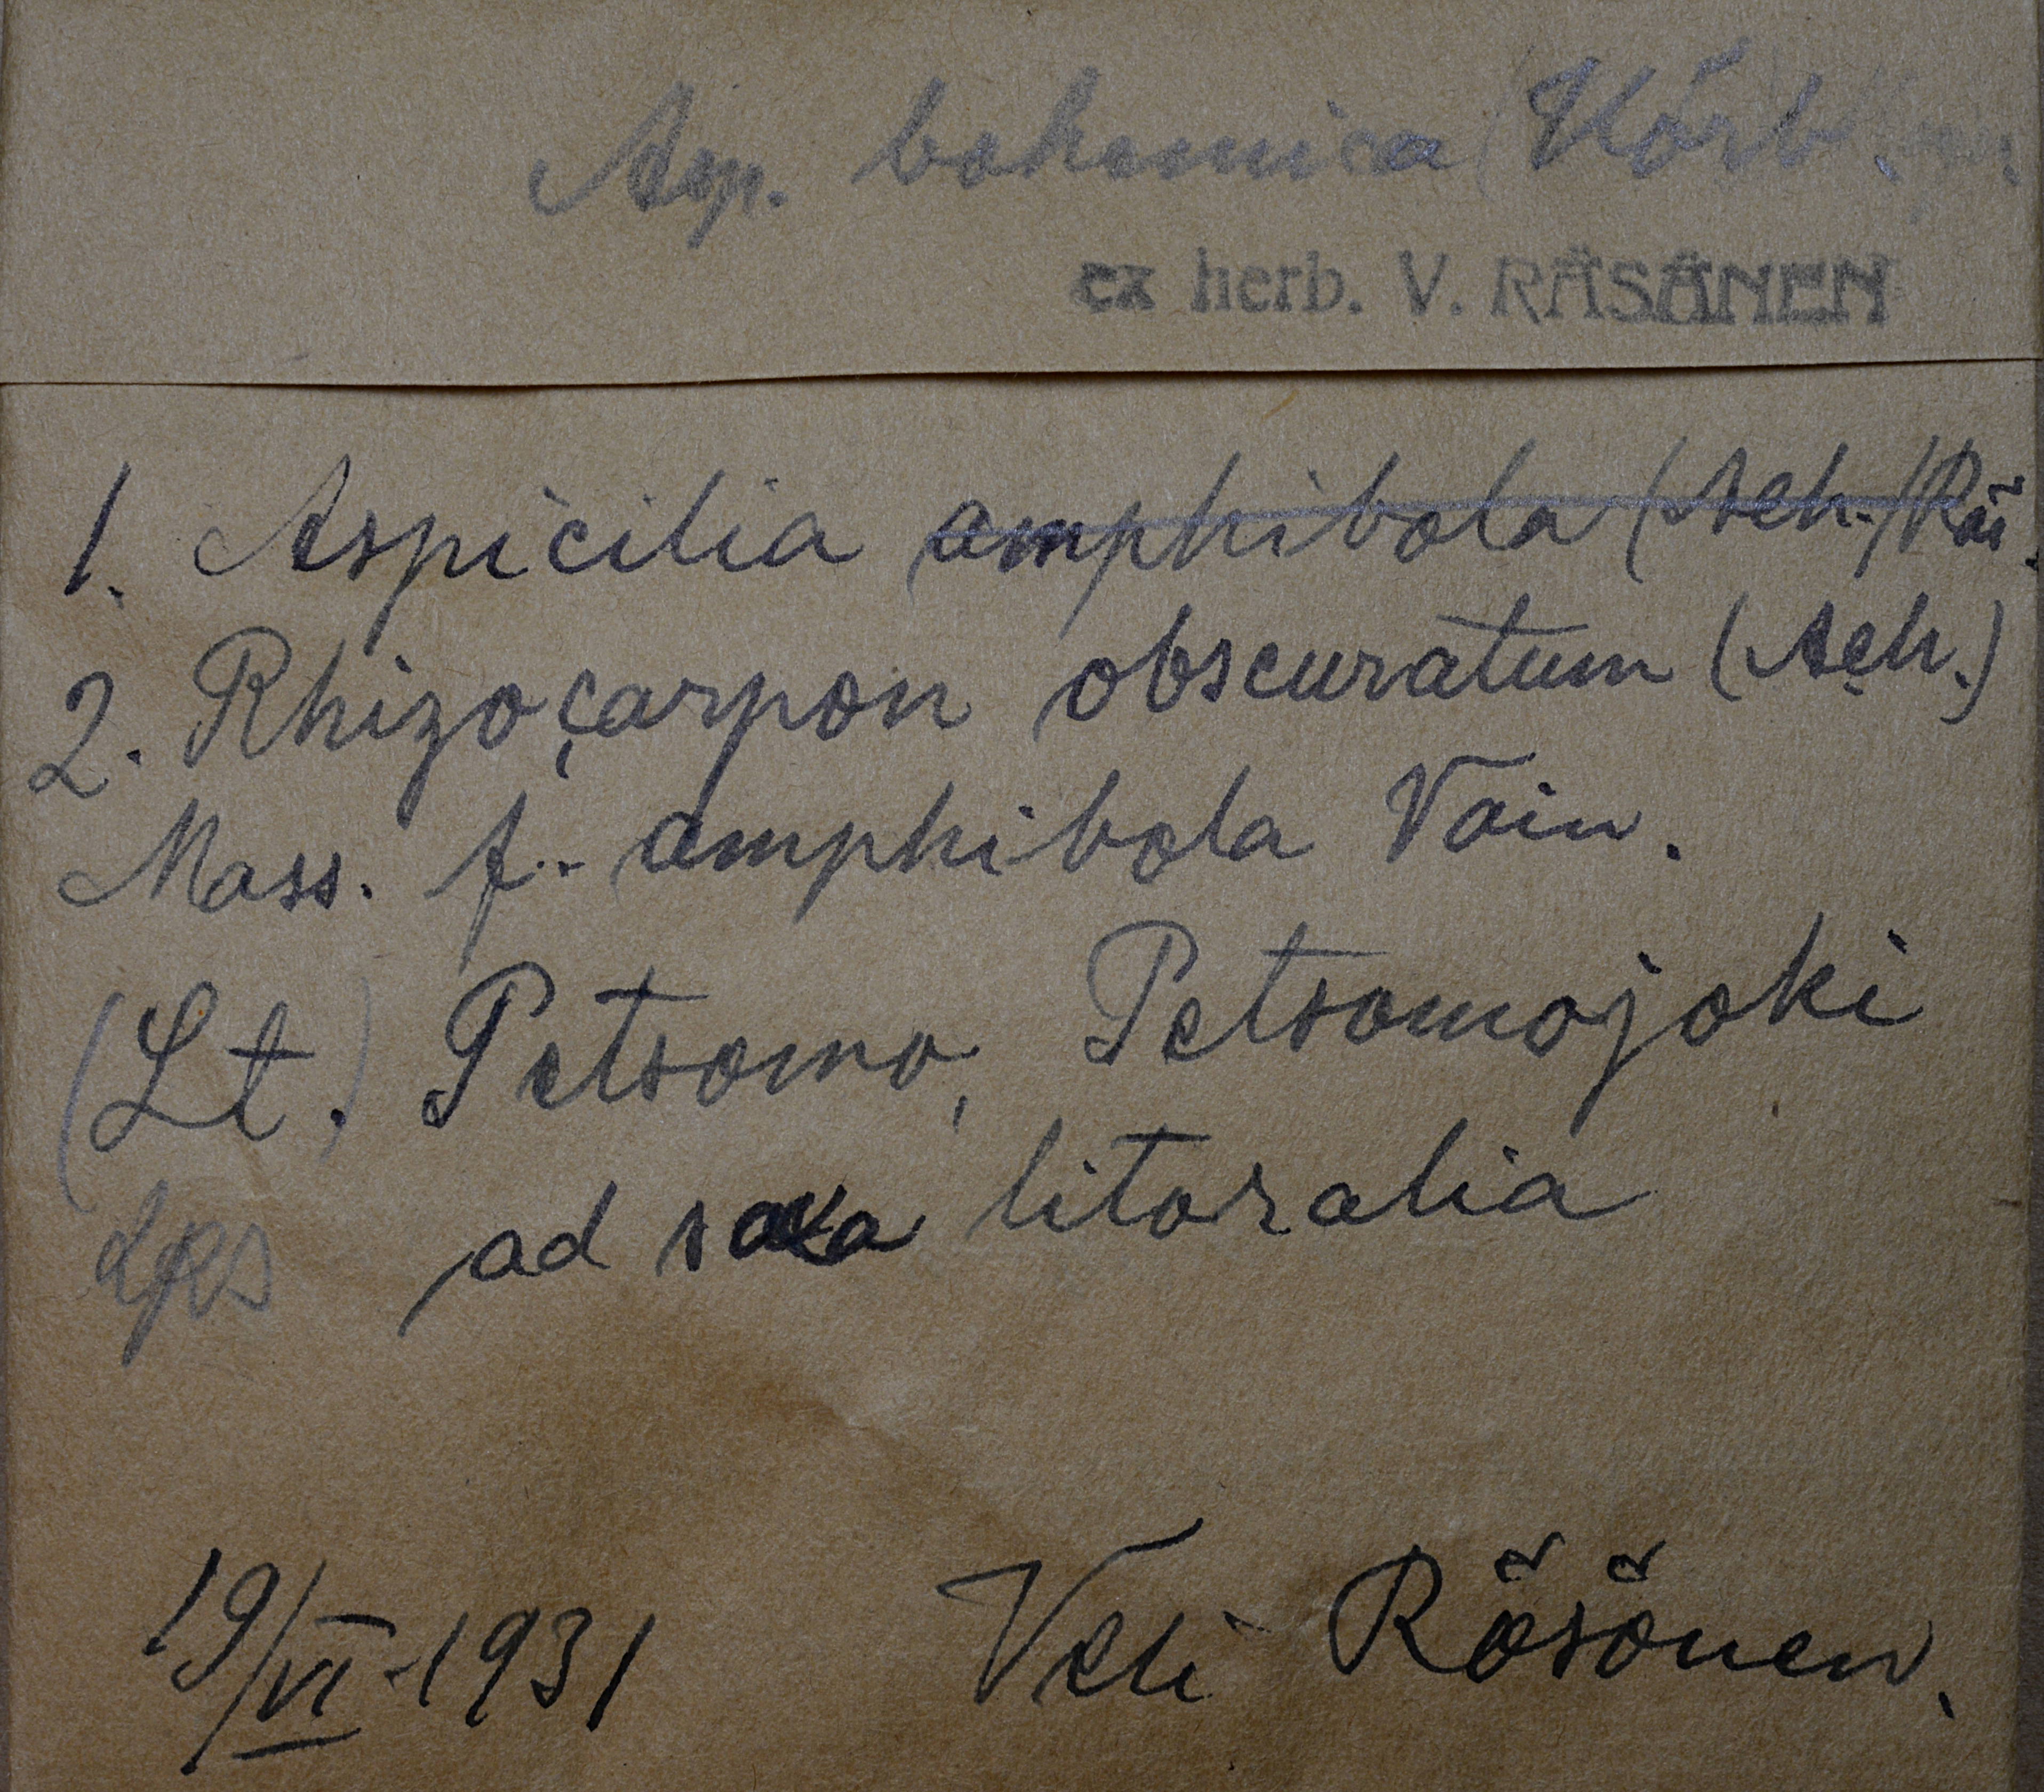 Asp. bohemica (Körb.
ex herb. V. RÄSÄNEN
1. Aspicilia amphibola (Ach.) Räs.
2. Rhizocarpon obscuratum (Ach.)
Mass. f. amphibola Vain.
(Lt.) Petsamo, Petsamojoki
Lps ad saxa litoralia
19/VI 1931 Veli Räsänen.